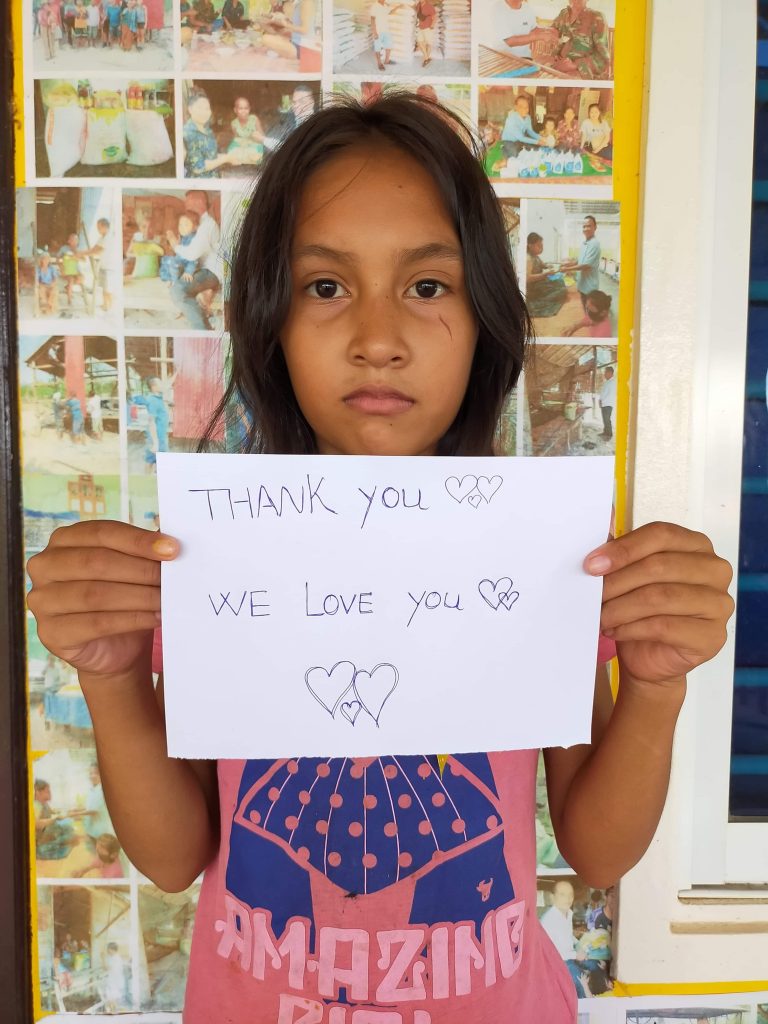 THANK you
WE LOVE you
AMAZING